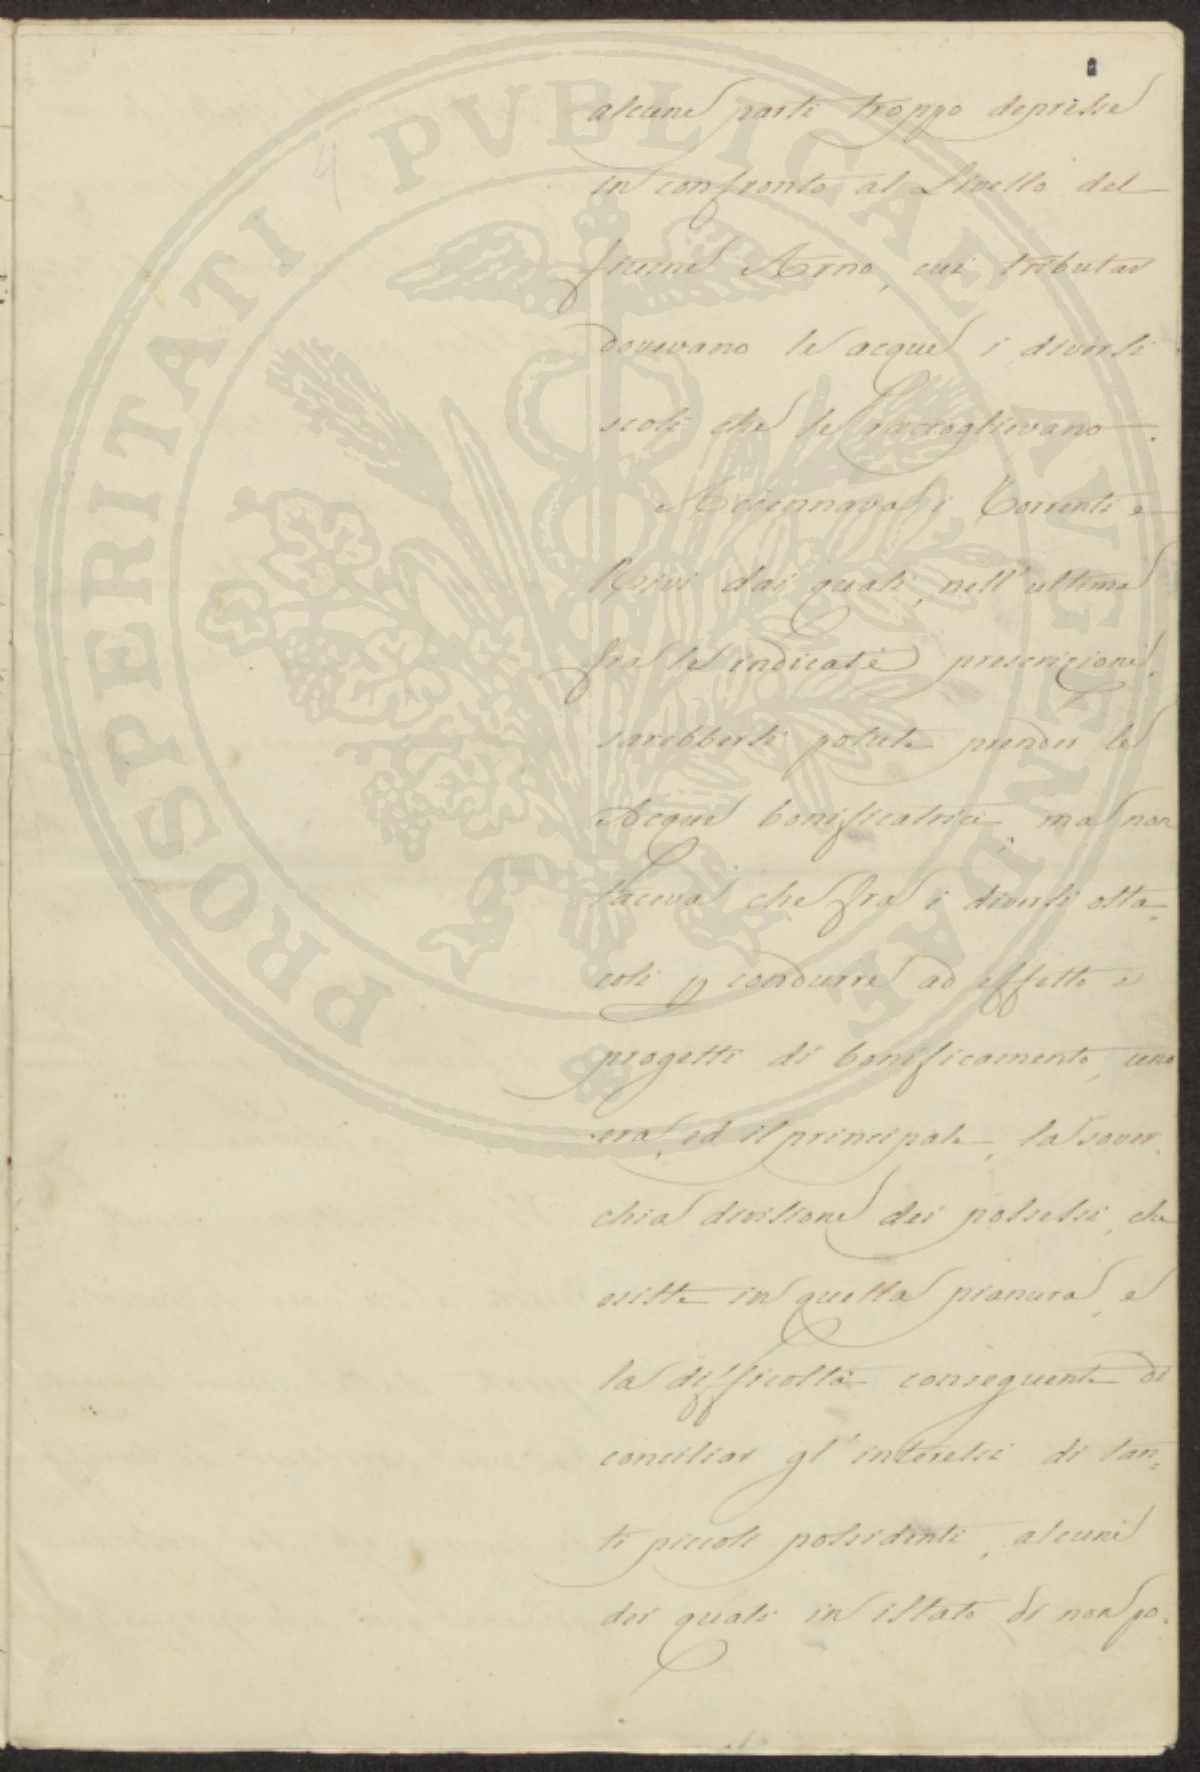 PROSPERITATI PVBLICAE AVGENDAE
4
alcune parti troppo depresse
in confronto al Livello del
fiume Arno, cui tributar
dovevano le acque i diversi
scoli che le raccoglievano.
Accennava i Torrenti e
Rivi dai quali, nell'ultima
fra le indicate prescrizioni,
sarebbersi potute prender le
Acque bonificatrici, ma non
taceva che fra i diversi osta=
coli p condurre ad effetto i
progetti di bonificamento, uno
era, ed il principale, la sover=
chia divisione dei possessi, che
esiste in quella pianura, e
la difficoltà conseguente di
conciliar gl'interessi di tan=
ti piccoli possidenti, alcuni
dei quali in istato di non po=